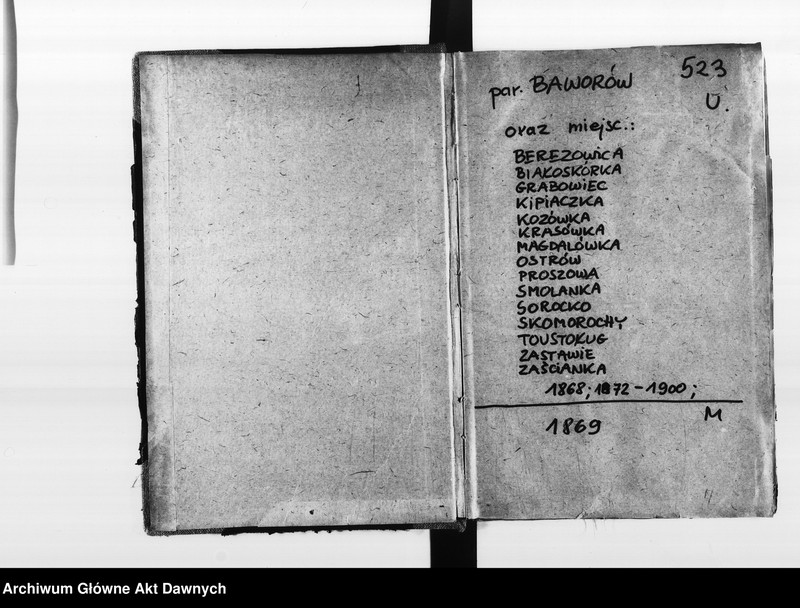 523
par. BAWORÓW
U.
oraz miejsc.:
BEREZOWICA
BIAŁOSKÓRKA
GRABOWIEC
KIPIACZKA
KOZÓWKA
KRASÓWKA
MAGDALÓWKA
OSTRÓW
PROSZOWA
SMOLANKA
SOROCKO
SKOMOROCHY
TOUSTOŁUG
ZASTAWIE
ZAŚCIANKA
1868; 1872-1900;
M
1869
Archiwum Główne Akt Dawnych